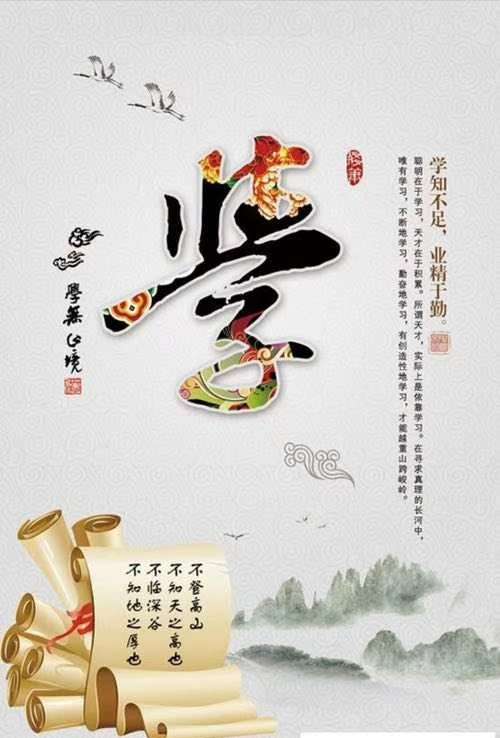 学知不足，业精于勤。
聪明在于学习，天才在于积累。所谓天才，实际上是依靠学习。在寻求真理的长河中，
唯有学习，不断地学习，勤奋地学习，有创造性地学习，才能越重山跨峻岭。
学
學無止境
不登高山
不知天之高也
不临深谷
不知地之厚也